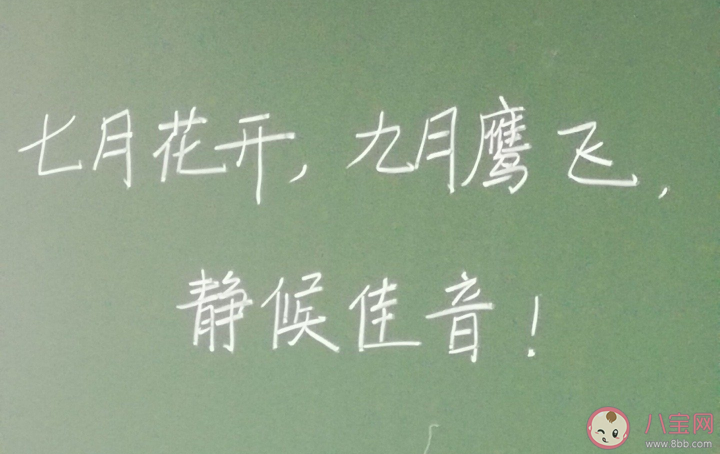 七月花开,九月鹰飞,
静候佳音!
八宝网
www.8bb.com